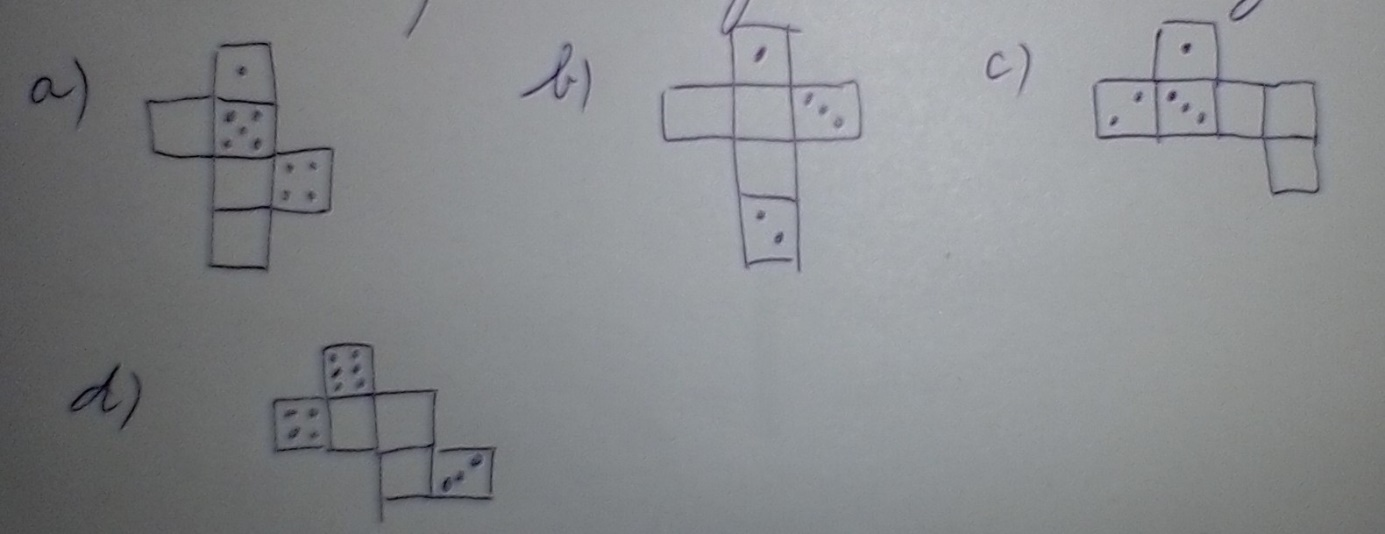 a) b) c)
d)